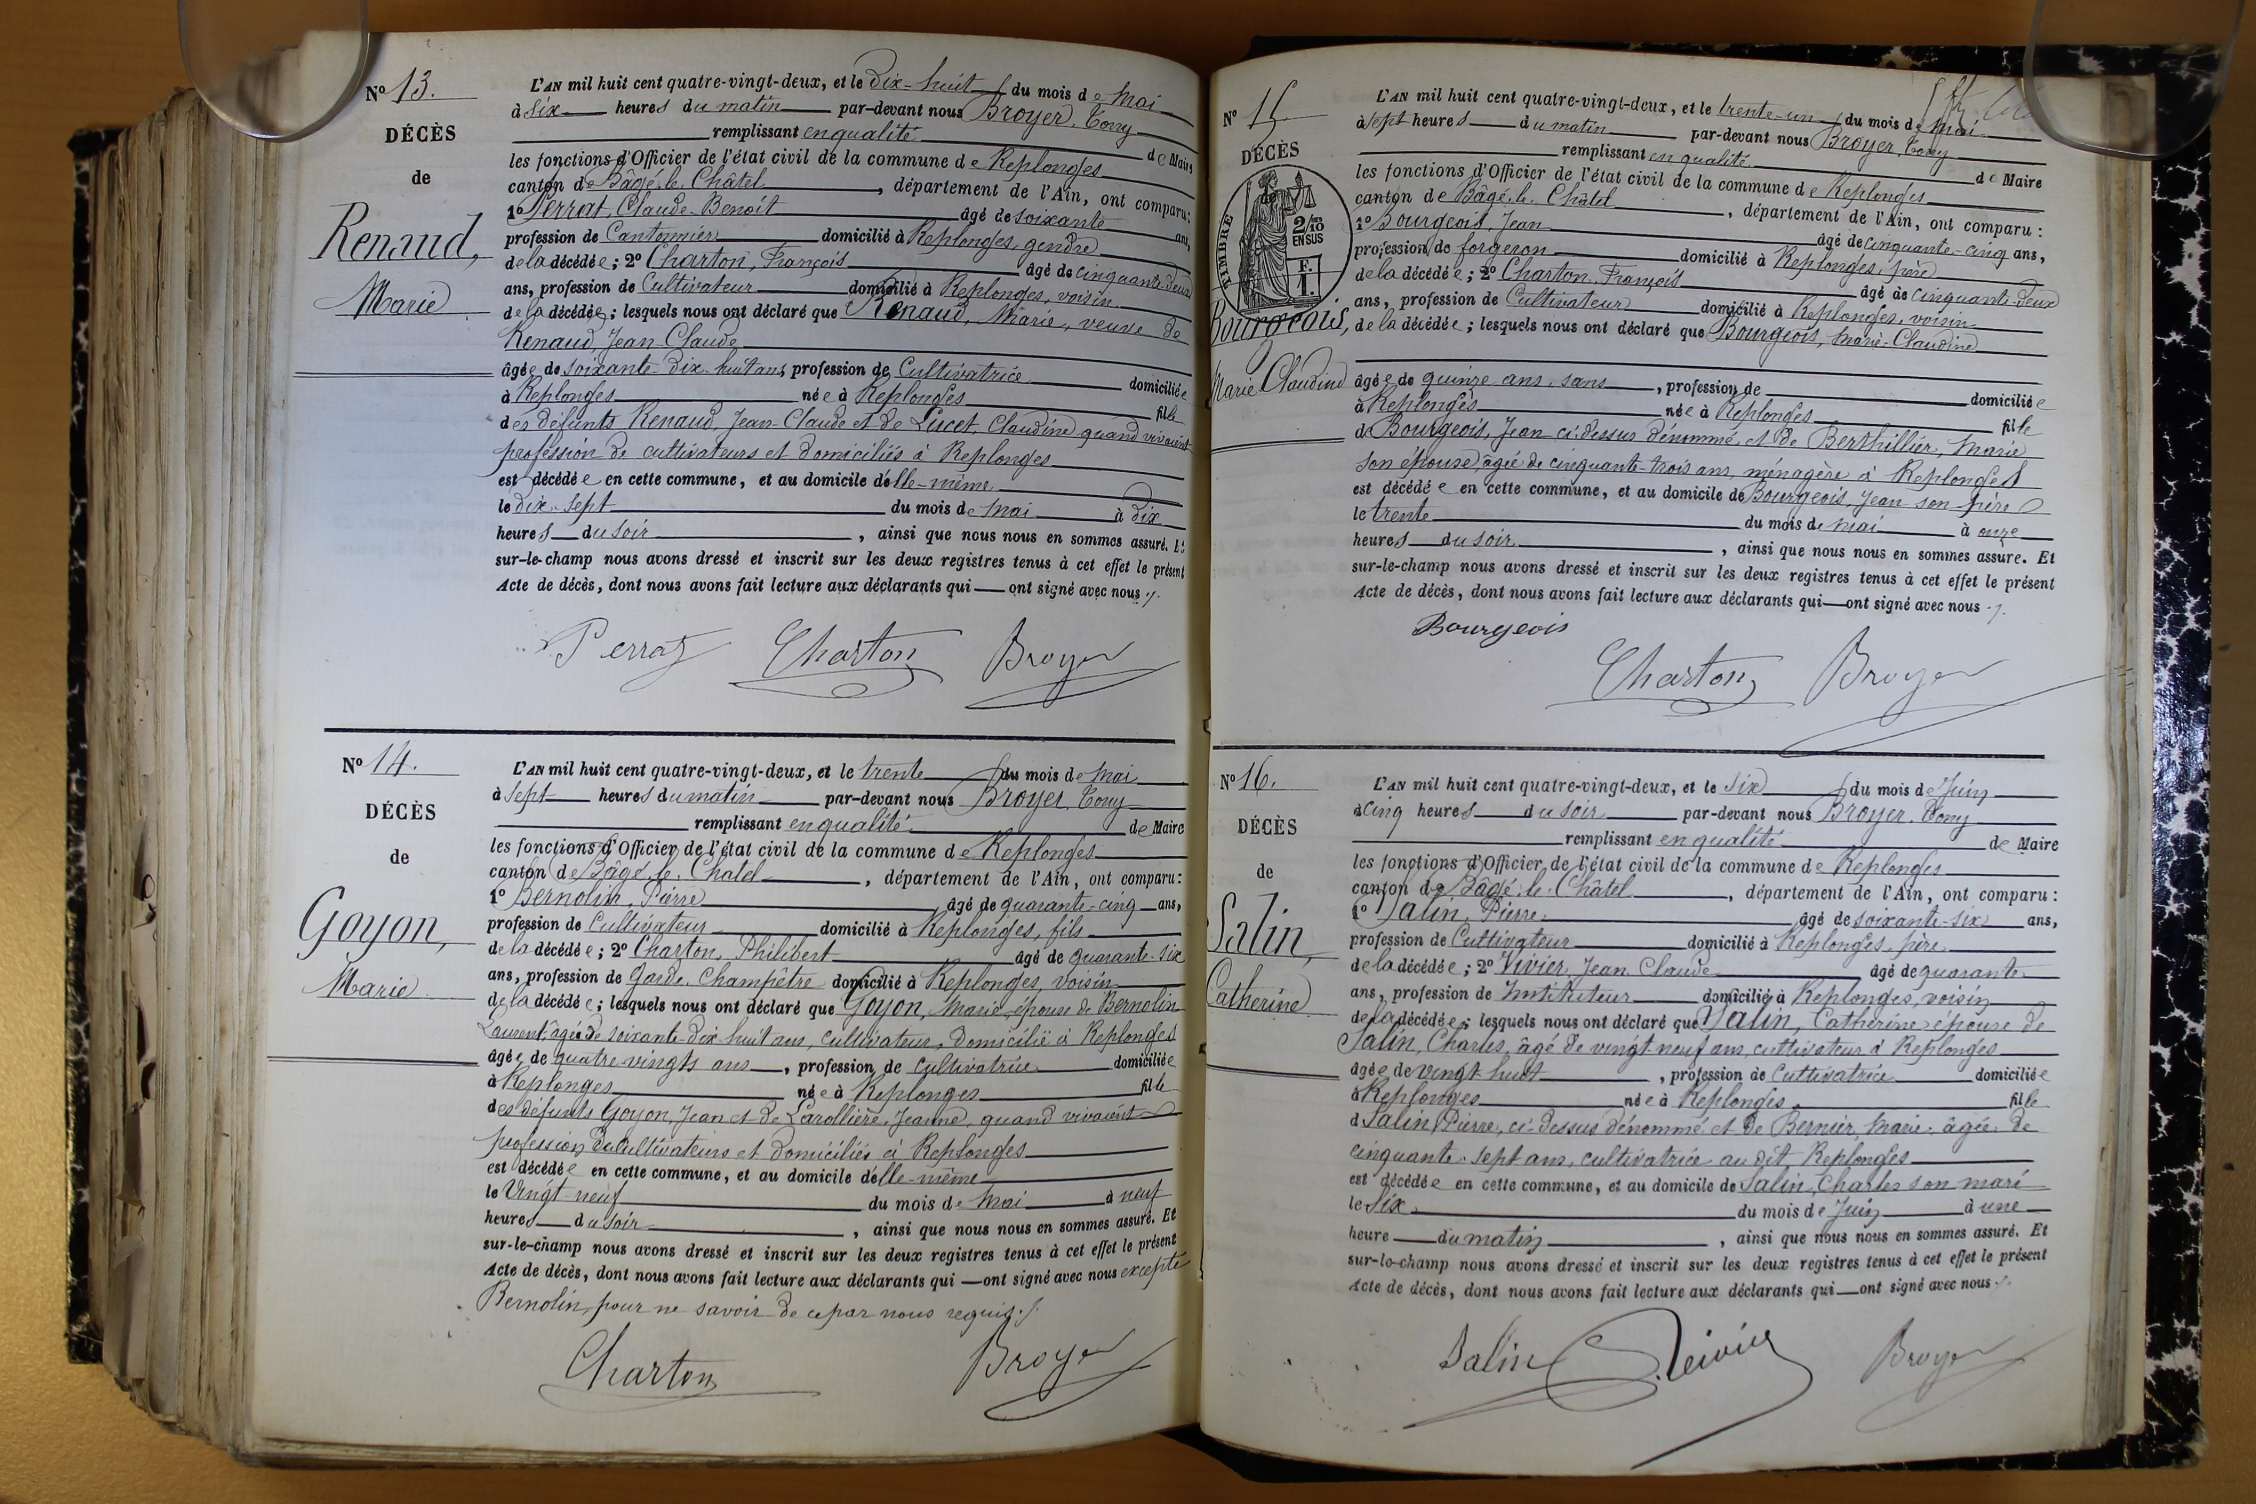 Nº 13.
DÉCÈS
de
Renaud,
Marie
L'AN mil huit cent quatre-vingt-deux, et le Dix-huit du mois de Mai
à six heures du matin par-devant nous Broyer, Tony
remplissant en qualité de Maire
les fonctions d'Officier de l'état civil de la commune de Replonges
canton de Bâgé-le-Châtel, département de l'Ain, ont comparu:
1º Perrat, Claude-Benoît âgé de soixante ans,
profession de Cantonnier domicilié à Replonges, gendre
de la décédée; 2º Charton, François âgé de cinquante-deux
ans, profession de Cultivateur domicilié à Replonges, voisin
de la décédée; lesquels nous ont déclaré que Renaud, Marie, veuve de
Renaud, Jean-Claude
âgée de soixante-dix-huit ans, profession de Cultivatrice domiciliée
à Replonges née à Replonges fille
des défunts Renaud, Jean-Claude et de Lucet, Claudine quand vivaient
profession de cultivateurs et domiciliés à Replonges
est décédée en cette commune, et au domicile d'elle-même
le dix-sept du mois de Mai à dix
heures du soir, ainsi que nous nous en sommes assuré. Et
sur-le-champ nous avons dressé et inscrit sur les deux registres tenus à cet effet le présent
Acte de décès, dont nous avons fait lecture aux déclarants qui ont signé avec nous
Perrat Charton Broyer
Nº 14.
DÉCÈS
de
Goyon,
Marie
L'AN mil huit cent quatre-vingt-deux, et le trente du mois de Mai
à sept heures du matin par-devant nous Broyer, Tony
remplissant en qualité de Maire
les fonctions d'Officier de l'état civil de la commune de Replonges
canton de Bâgé-le-Chatel, département de l'Ain, ont comparu:
1º Bernolin, Pierre âgé de quarante-cinq ans,
profession de Cultivateur domicilié à Replonges, fils
de la décédée; 2º Charton, Philibert âgé de quarante-six
ans, profession de Garde-Champêtre domicilié à Replonges, voisin
de la décédée; lesquels nous ont déclaré que Goyon, Marie épouse de Bernolin
Laurent, âgé de soixante-dix-huit ans, cultivateur, domicilié à Replonges
âgée de quatre-vingts ans, profession de cultivatrice domiciliée
à Replonges née à Replonges fille
des défunts Goyon, Jean et de Larollière, Jeanne, quand vivaient
profession de cultivateurs et domiciliés à Replonges
est décédée en cette commune, et au domicile d'elle-même
le Vingt-neuf du mois de Mai à neuf
heures du soir, ainsi que nous nous en sommes assuré. Et
sur-le-champ nous avons dressé et inscrit sur les deux registres tenus à cet effet le présent
Acte de décès, dont nous avons fait lecture aux déclarants qui ont signé avec nous excepté
Bernolin, pour ne savoir de ce par nous requis.
Charton Broyer
Nº 15
DÉCÈS
de
TIMBRE
2/10
EN SUS
F.
1.
Bourgeois,
Marie Claudine
L'AN mil huit cent quatre-vingt-deux, et le trente-un du mois de Mai
à sept heures du matin par-devant nous Broyer, Tony
remplissant en qualité de Maire
les fonctions d'Officier de l'état civil de la commune de Replonges
canton de Bâgé-le-Châtel, département de l'Ain, ont comparu:
1º Bourgeois, Jean âgé de cinquante-cinq ans,
profession de forgeron domicilié à Replonges, père
de la décédée; 2º Charton, François âgé de cinquante-deux
ans, profession de Cultivateur domicilié à Replonges, voisin
de la décédée; lesquels nous ont déclaré que Bourgeois, Marie-Claudine
âgée de quinze ans, sans, profession de domiciliée
à Replonges née à Replonges fille
de Bourgeois, Jean ci-dessus dénommé et de Berthillier, Marie
son épouse, âgée de cinquante-trois ans, ménagère à Replonges
est décédée en cette commune, et au domicile de Bourgeois, Jean son père
le trente du mois de Mai à onze
heures du soir, ainsi que nous nous en sommes assuré. Et
sur-le-champ nous avons dressé et inscrit sur les deux registres tenus à cet effet le présent
Acte de décès, dont nous avons fait lecture aux déclarants qui ont signé avec nous
Bourgeois
Charton Broyer
Nº 16.
DÉCÈS
de
Salin,
Catherine
L'AN mil huit cent quatre-vingt-deux, et le six du mois de Juin
à cinq heures du soir par-devant nous Broyer, Tony
remplissant en qualité de Maire
les fonctions d'Officier de l'état civil de la commune de Replonges
canton de Bâgé-le-Châtel, département de l'Ain, ont comparu:
1º Salin, Pierre âgé de soixante-six ans,
profession de Cultivateur domicilié à Replonges, père
de la décédée; 2º Vivier, Jean Claude âgé de quarante
ans, profession de Instituteur domicilié à Replonges, voisin
de la décédée; lesquels nous ont déclaré que Salin, Catherine épouse de
Salin, Charles, âgé de vingt-neuf ans, cultivateur à Replonges
âgée de vingt-huit, profession de Cultivatrice domiciliée
à Replonges née à Replonges fille
de Salin, Pierre, ci-dessus dénommé et de Bernier, Marie, âgée de
cinquante-sept ans, cultivatrice au dit Replonges
est décédée en cette commune, et au domicile de Salin, Charles son mari
le six du mois de Juin à une
heure du matin, ainsi que nous nous en sommes assuré. Et
sur-le-champ nous avons dressé et inscrit sur les deux registres tenus à cet effet le présent
Acte de décès, dont nous avons fait lecture aux déclarants qui ont signé avec nous
Salin Vivier Broyer